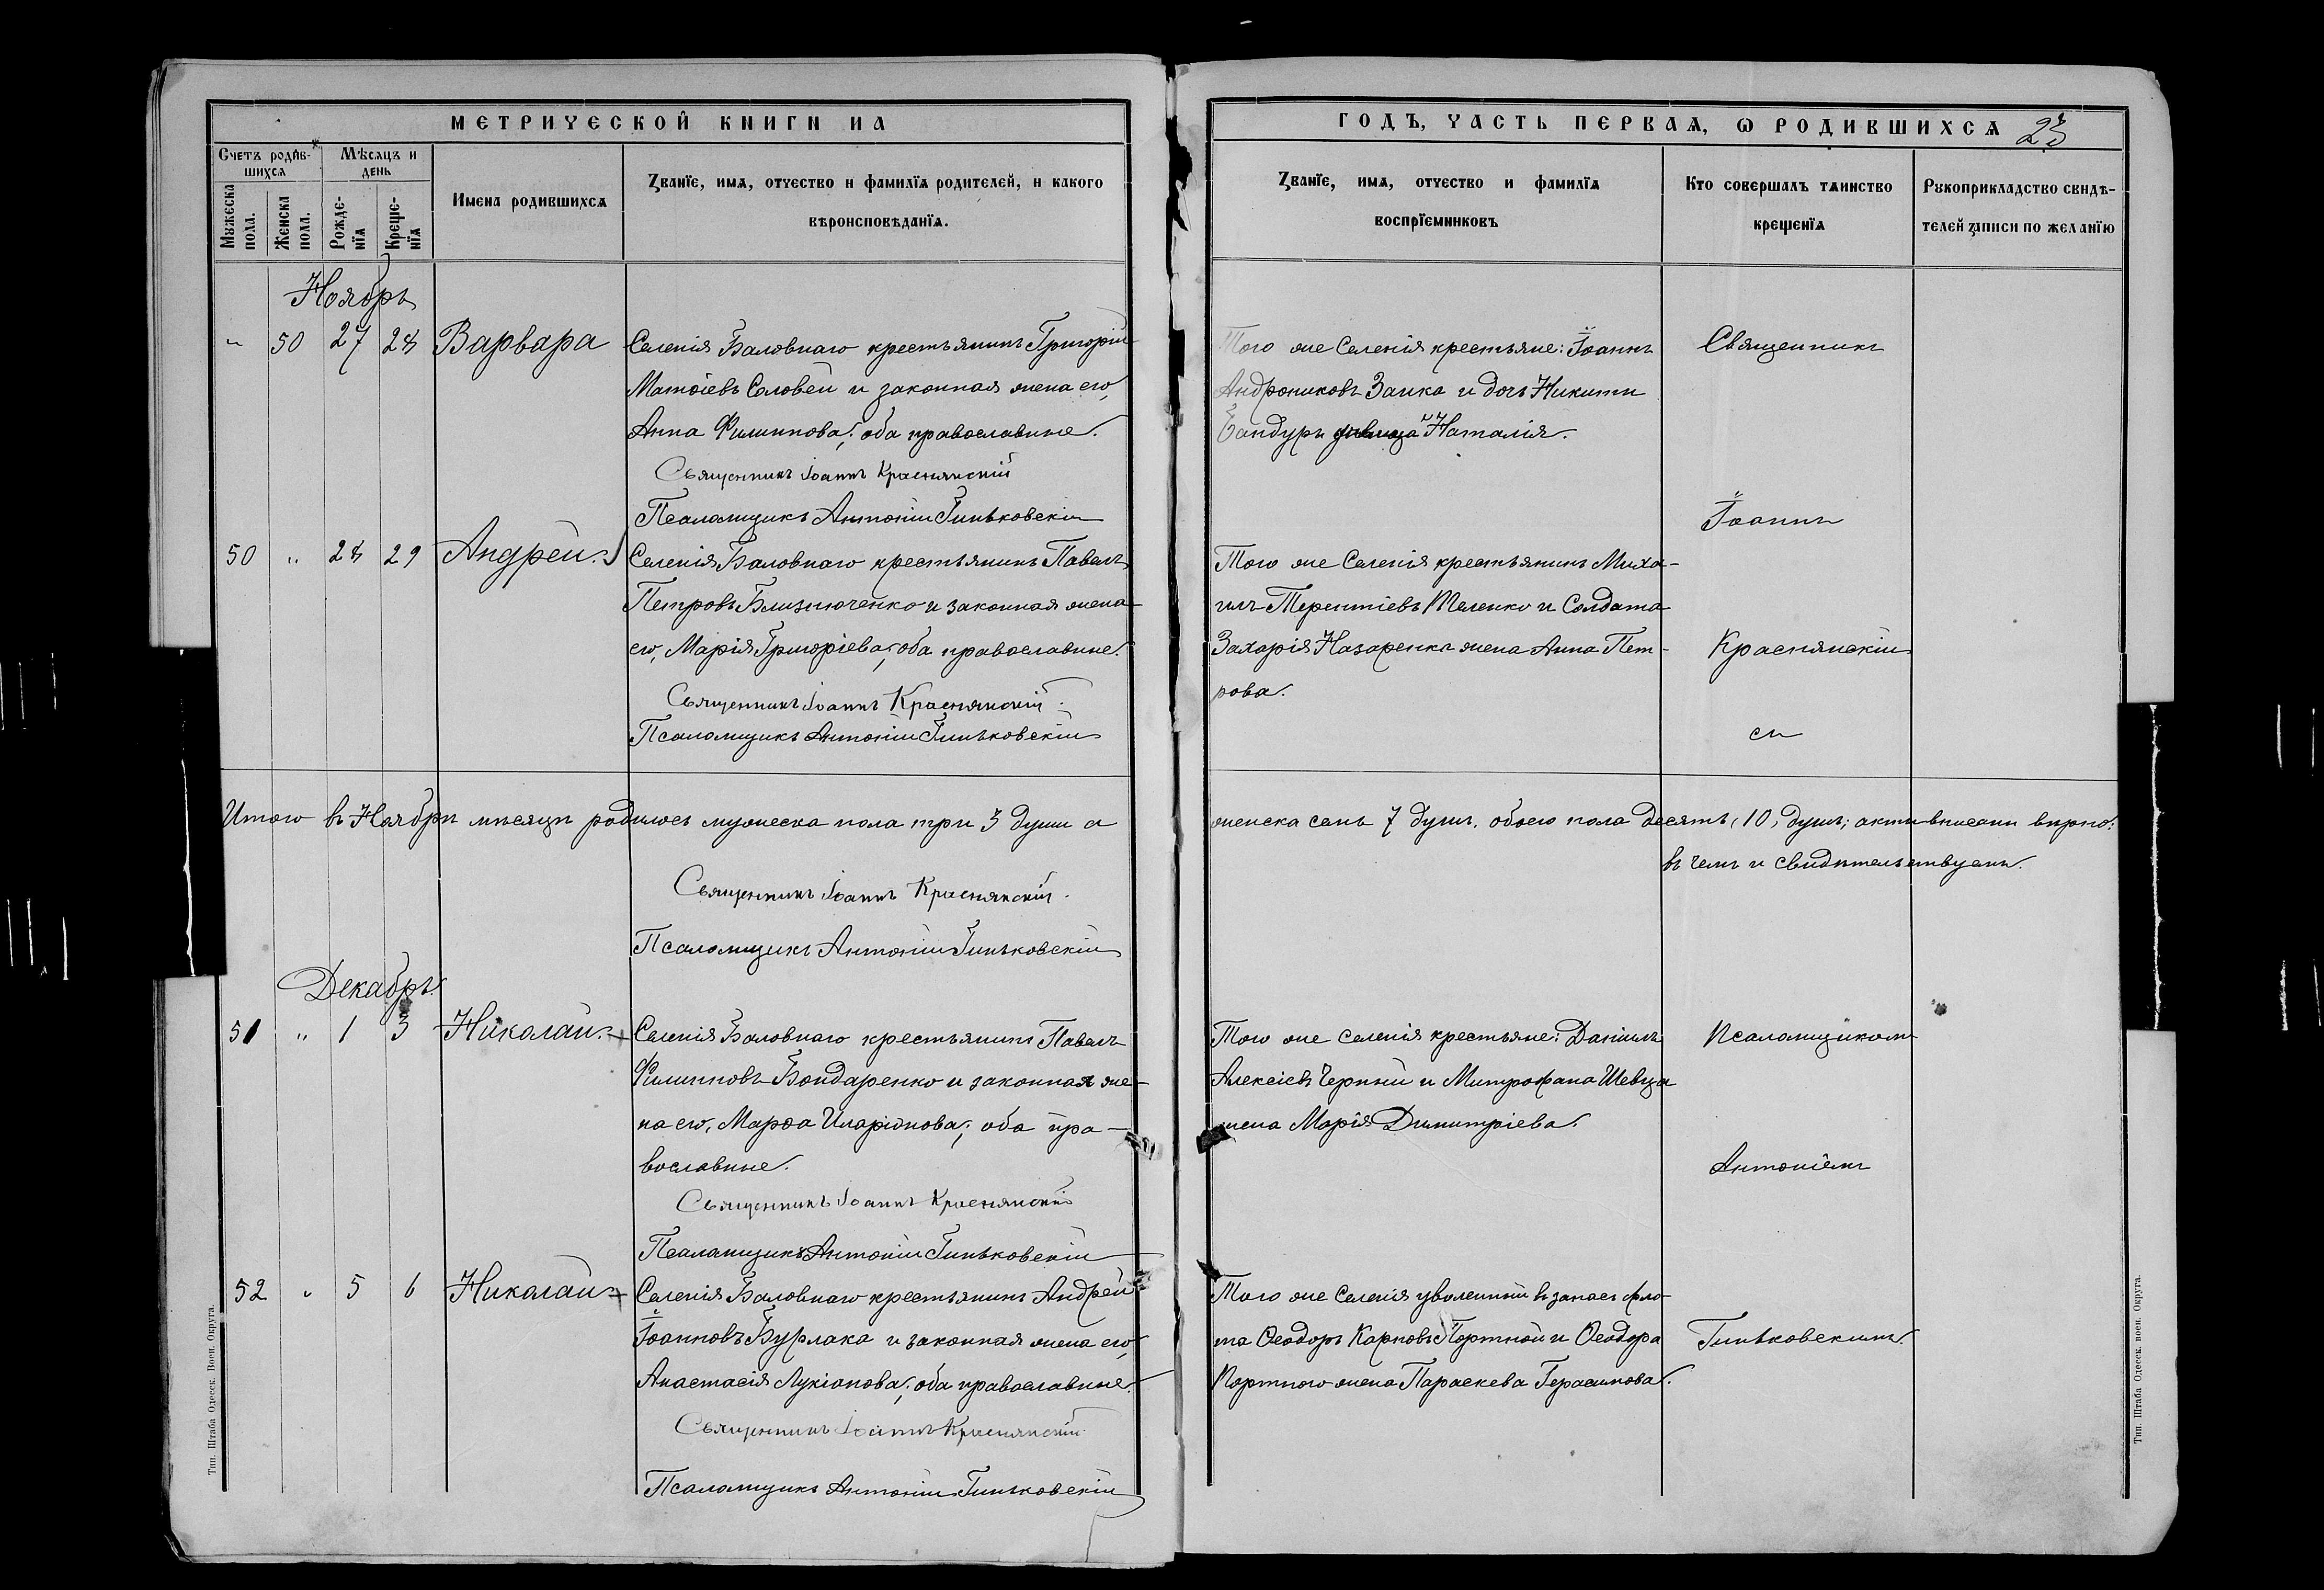 МЕТРИЧЕСКОЙ КНИГИ НА
Счетъ родив-
шихся
Мѣсяцъ и
день
Мужеска
пола.
Женска
пола.
Рожде-
нїя
Креще-
нїя
Имена родившихся
Званїе, имя, отчество и фамилїя родителей, и какого
вѣроисповѣданїя.
Ноябрь
" 50 27 28 Варвара
Селенія Баловнаго крестьянинъ Григорій
Матѳіевъ Соловей и законная жена его,
Анна Филиппова; оба православные.
Священникъ Іоаннъ Краснянскій
Псаломщикъ Антоній Гиньковскій
50 " 28 29 Андрей.
Селенія Баловнаго крестьянинъ Павелъ
Петровъ Близнюченко и законная жена
его, Марія Григоріева; оба православные.
Священникъ Іоаннъ Краснянскій.
Псаломщикъ Антоній Гиньковскій
Итого въ Ноябрѣ мѣсяцѣ родилось мужеска пола три 3 души а
Священникъ Іоаннъ Краснянскій.
Псаломщикъ Антоній Гиньковскій
Декабрь.
51 " 1 3 Николай.
Селенія Баловнаго крестьянинъ Павелъ
Филипповъ Бондаренко и законная же-
на его, Марѳа Иларіонова; оба пра-
вославные.
Священникъ Іоаннъ Краснянскій
Псаломщикъ Антоній Гиньковскій
52 " 5 6 Николай
Селенія Баловнаго крестьянинъ Андрей
Іоанновъ Бурлака и законная жена его,
Анастасія Лукіанова; оба православные.
Священникъ Іоаннъ Краснянскій
Псаломщикъ Антоній Гиньковскій
Тип. Штаба Одесск. Воен. Округа.
ГОДЪ, ЧАСТЬ ПЕРВАЯ, Ѡ РОДИВШИХСЯ
23
Званїе, имя, отчество и фамилїя
воспрїемниковъ
Кто совершалъ таинство
крещенїя
Рукоприкладство свидѣ-
телей записи по желанїю
Того же Селенія крестьяне: Іоаннъ
Андрониковъ Заика и дочь Никиты
Бандуры Наталія.
Священникъ
Іоаннъ
Того же Селенія крестьянинъ Миха-
илъ Терентіевъ Теленко и Солдата
Захарія Назаренка жена Анна Пет-
рова.
Краснянскій
съ
женска семь 7 душъ, обоего пола десять, 10, душъ; акты вписаны вѣрно:
въ чемъ и свидѣтельствуемъ.
Того же селенія крестьяне: Даніилъ
Алексіевъ Черный и Митрофана Шевца
жена Марія Димитріева.
Псаломщикомъ
Антоніемъ
Того же Селенія уволенный въ запасъ фло-
та Ѳеодоръ Карповъ Портной и Ѳеодора
Портного жена Параскева Герасимова.
Гиньковскимъ.
Тип. Штаба Одесск. воен. Округа.